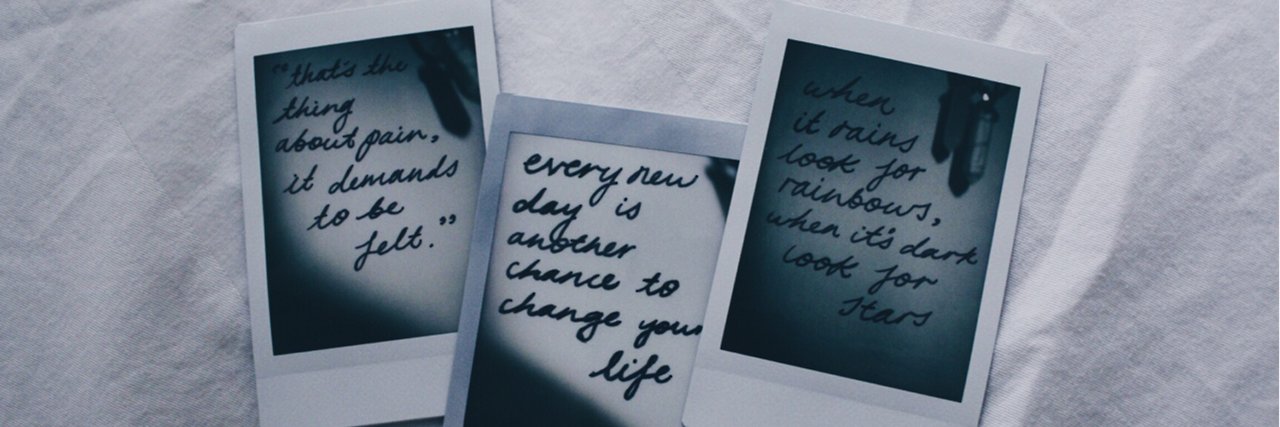 "that's the
thing
about pain,
it demands
to be
felt."
every new
day is
another
chance to
change your
life
when
it rains
look for
rainbows,
when it's dark
look for
stars